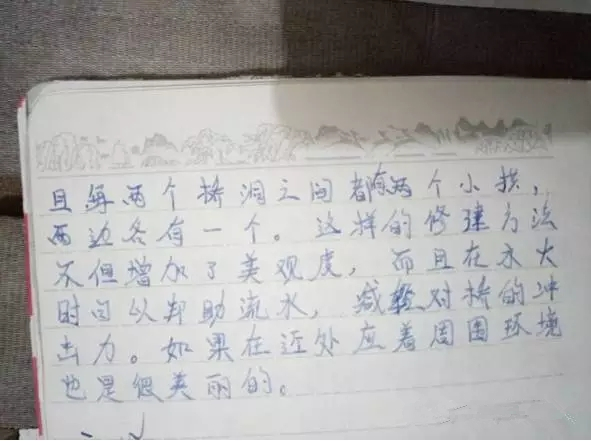 且每两个桥洞之间都有两个小拱，
两边各有一个。这样的修建方法
不但增加了美观度，而且在水大
时可以帮助流水，减轻对桥的冲
击力。如果在近处应着周围环境
也是很美丽的。